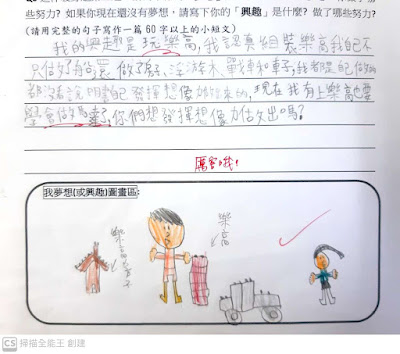 些努力? 如果你現在還沒有夢想,請寫下你的「興趣」是什麼? 做了哪些努力?
(請用完整的句子寫作一篇 60 字以上的小短文)
我的興趣是玩樂高,我認真組裝樂高我自己不
只做了船還做了 浮游木 戰神和車子,我都是自己做的
都沒看說明書自己發揮想像 的,現在我有上樂高也要
學會做馬車了,你們想發揮想像力做出 嗎?
厲害哦!
我夢想(或興趣)圖畫區:
樂高 子
樂高
CS 掃描全能王 創建